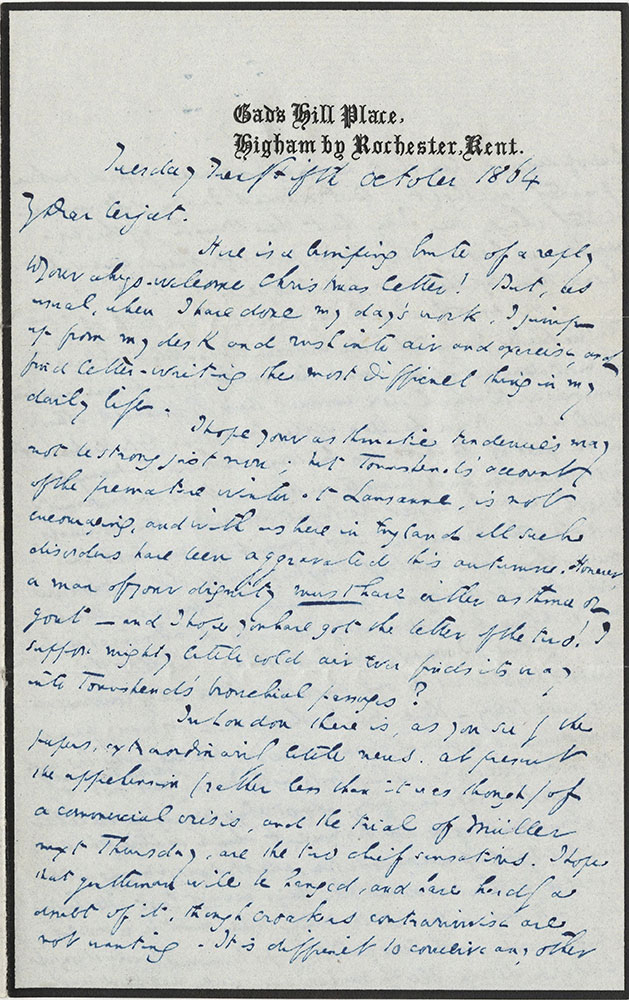 Gad's Hill Place,
Higham by Rochester, Kent.
Tuesday Twenty fifth October 1864
My Dear Cerjat.
Here is a limping brute of a reply
to your always-welcome Christmas letter! But, as
usual, when I have done my day's work, I jump
up from my desk and rush into air and exercise, and
find letter-writing the most difficult thing in my
daily life.
I hope your asthmatic tendencies may
not be strong just now; but Townshend's account
of the premature winter at Lausanne, is not
encouraging, and with us here in England all such
disorders have been aggravated this autumn. However,
a man of your dignity must have either asthma or
gout – and I hope you have got the better of the two! I
suppose mighty little cold air ever finds its way
into Townshend's bronchial passages?
In London there is, as you see by the
papers, extraordinarily little news. At present
the apprehension (rather less than it was though) of
a commercial crisis, and the trial of Müller
next Thursday, are the two chief sensations. I hope
that gentleman will be hanged, and have hardly a
doubt of it, though croakers contrariwise are
not wanting – It is difficult to conceive any other